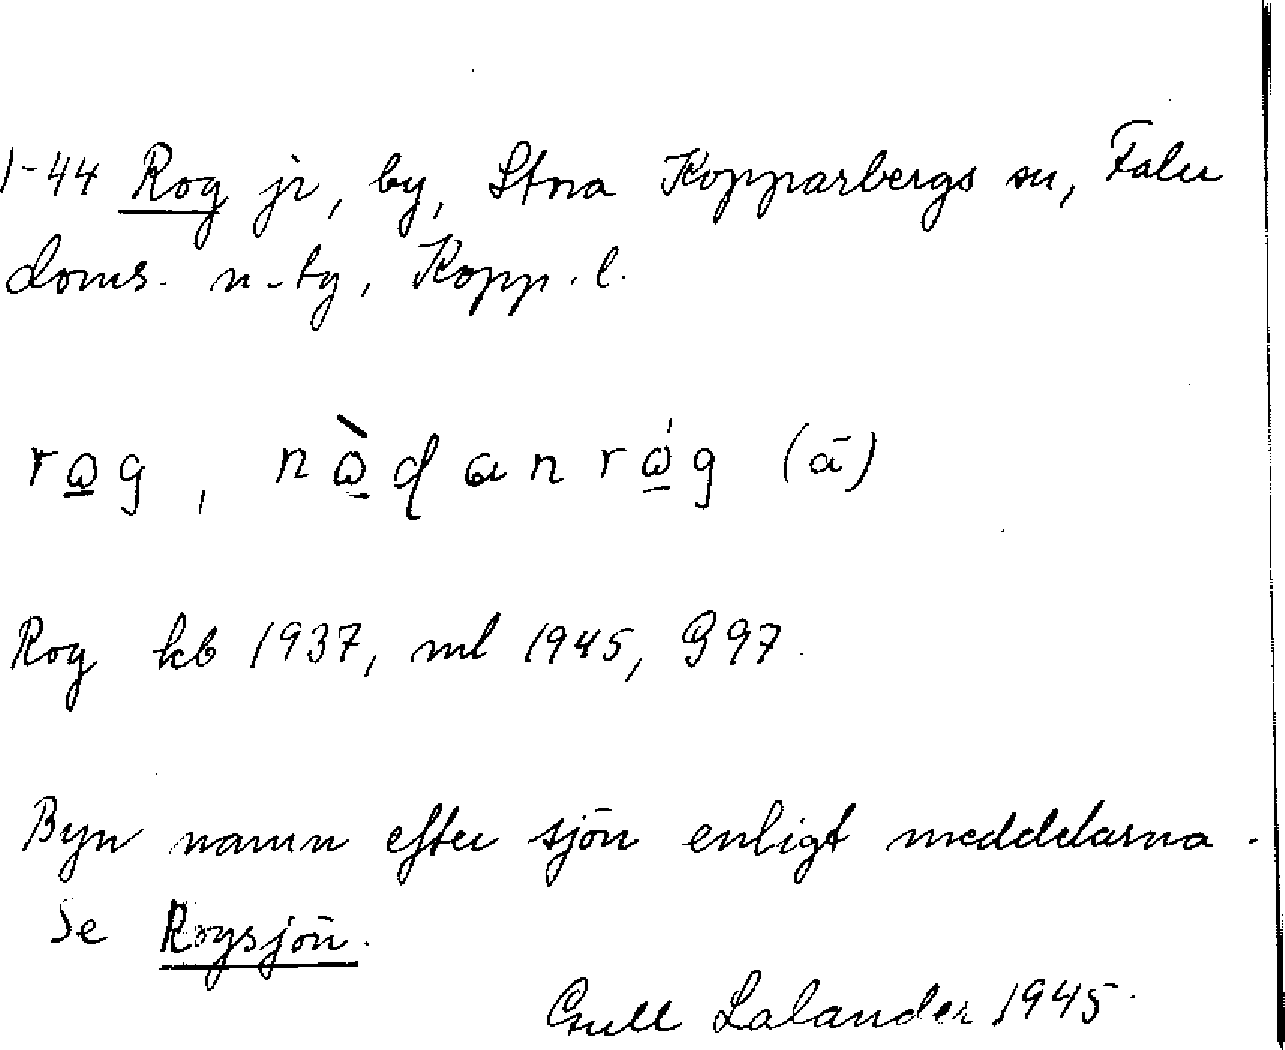 1-44 Rog jr, by, Stora Kopparbergs sn, Falu
doms. n-by, Kopp. l.
rꞷ̲g, nꞷ̲̀danrꞷ̲́g (ā)
Rog kb 1937, ml 1945, G97.
Byn namn efter sjön enligt meddelarna.
Se Rogsjön.
Gull Lalander 1945.